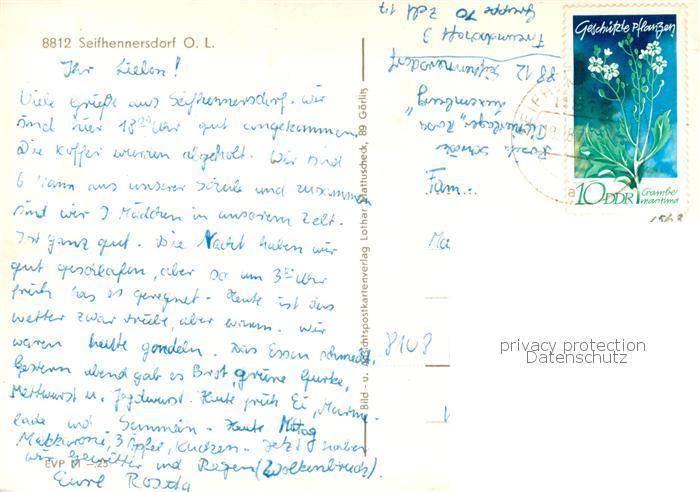 8812 Seifhennersdorf O. L.
Ihr Lieben!
Viele Grüße aus Seifhennersdorf. Wir
sind hier 18 00 Uhr gut angekommen.
Die Koffer wurden abgeholt. Wir sind
6 Mann aus unserer Schule und zusammen
sind wir 9 Mädchen in unserem Zelt.
Ist ganz gut. Die Nacht haben wir
gut geschlafen, aber so um 3 Uhr
früh has es geregnet. Heute ist das
Wetter zwar trübe, aber warm. Wir
waren heute gondeln. Das Essen schmeckt.
Gestern abend gab es Brot, grüne Gurke,
Mettwurst u. Jagdwurst. Heute früh Ei, Marme-
lade und Semmeln. Heute Mittag
Makkaroni, 3 Äpfel, Kuchen. Jetzt haben
wir Gewitter und Regen (Wolkenbruch).
EVP M -.25
Eure Rosita
Bild - u. Lothar Mattuscheck, 89 Görlitz
Gruppe 70 Zelt 17
Freundschaft 3
8812 Seifhennersdorf
"Rosa
Luxemburg"
Fam.:
Ma
8108
Geschützte Pflanzen
10 DDR
Crambe
maritima
privacy protection
Datenschutz